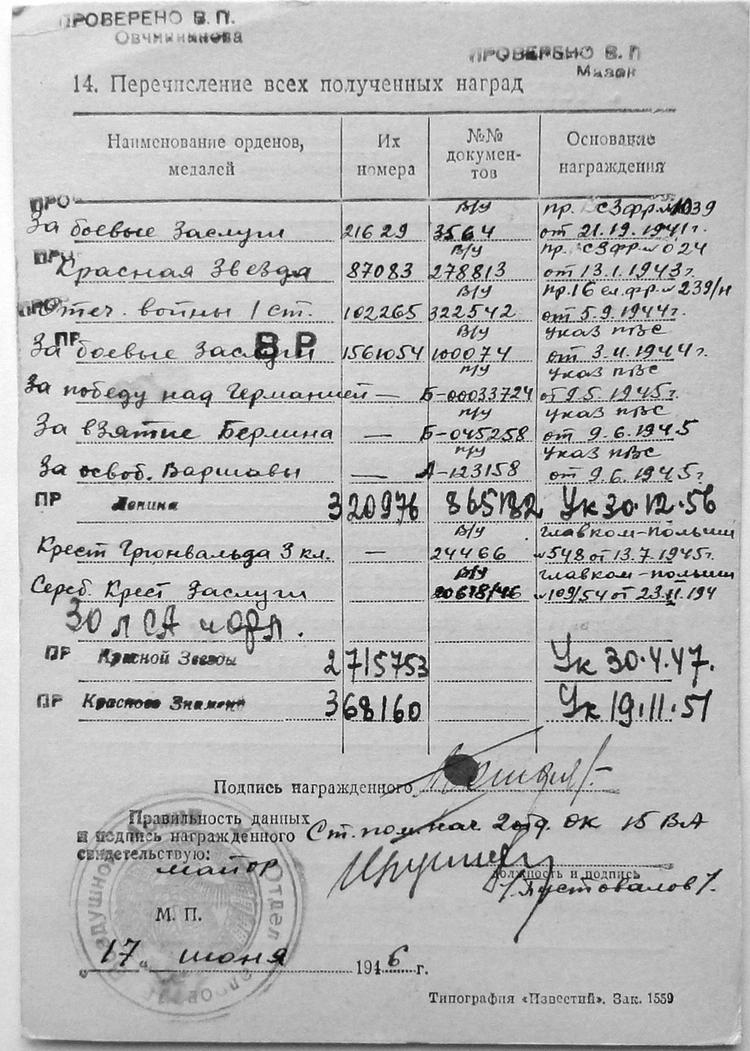 ПРОВЕРЕНО В. П.
Овчинникова
ПРОВЕРЕНО В. П
Мазан
14. Перечисление всех полученных наград
Наименование орденов, медалей
Их номера
№№ документов
Основание награждения
ПРО
За боевые Заслуги 21629 В/У 3564 пр. СЗФР № 039 от 21.19.1941г.
Красная Звезда 87083 В/У 278813 пр. СЗФР № 024 от 13.1.1943г.
Отеч. войны 1 ст. 102265 В/У 322542 пр. 16 239/н от 5.9.1944г.
ПР ВР
За боевые Заслуги 1561054 В/У 100074 указ ПВС от 3.11.1944г.
За победу над Германией — П/У Б-00033724 указ ПВС от 9.5.1945г.
За взятие Берлина — П/У Б-045258 указ ПВС от 9.6.1945
За освоб. Варшавы — П/У А-123158 указ ПВС от 9.6.1945г
ПР Ленина 320976 865182 Ук 30.12.56
Крест Грюнвальда 3 кл. — В/У 24466 главком-польши №548 от 13.7.1945г.
Сереб. Крест Заслуги В/У 20678/46 главком-польши №109/54 от 23.11.194
30 л СА и
ПР Красной Звезды 2715753 Ук 30.4.47.
ПР Красного Знамени 368160 Ук 19.11.51
Подпись награжденного
Правильность данных
и подпись награжденного
свидетельствую:
Ст. пом. нач. 2 отд. ОК 15 ВА
майор
должность и подпись
/Пустовалов/.
М. П.
„17„ июня 1946 г.
Типография «Известий». Зак. 1559